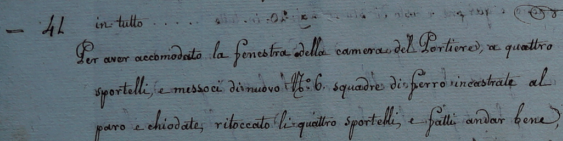 — 41 in tutto
Per aver accomodato la fenestra della camera del Portiere, a quattro
sportelli, e messoci di nuovo N.º 6. squadre di ferro incastrate al
paro e chiodate, ritoccato li quattro sportelli, e fatti andar bene,